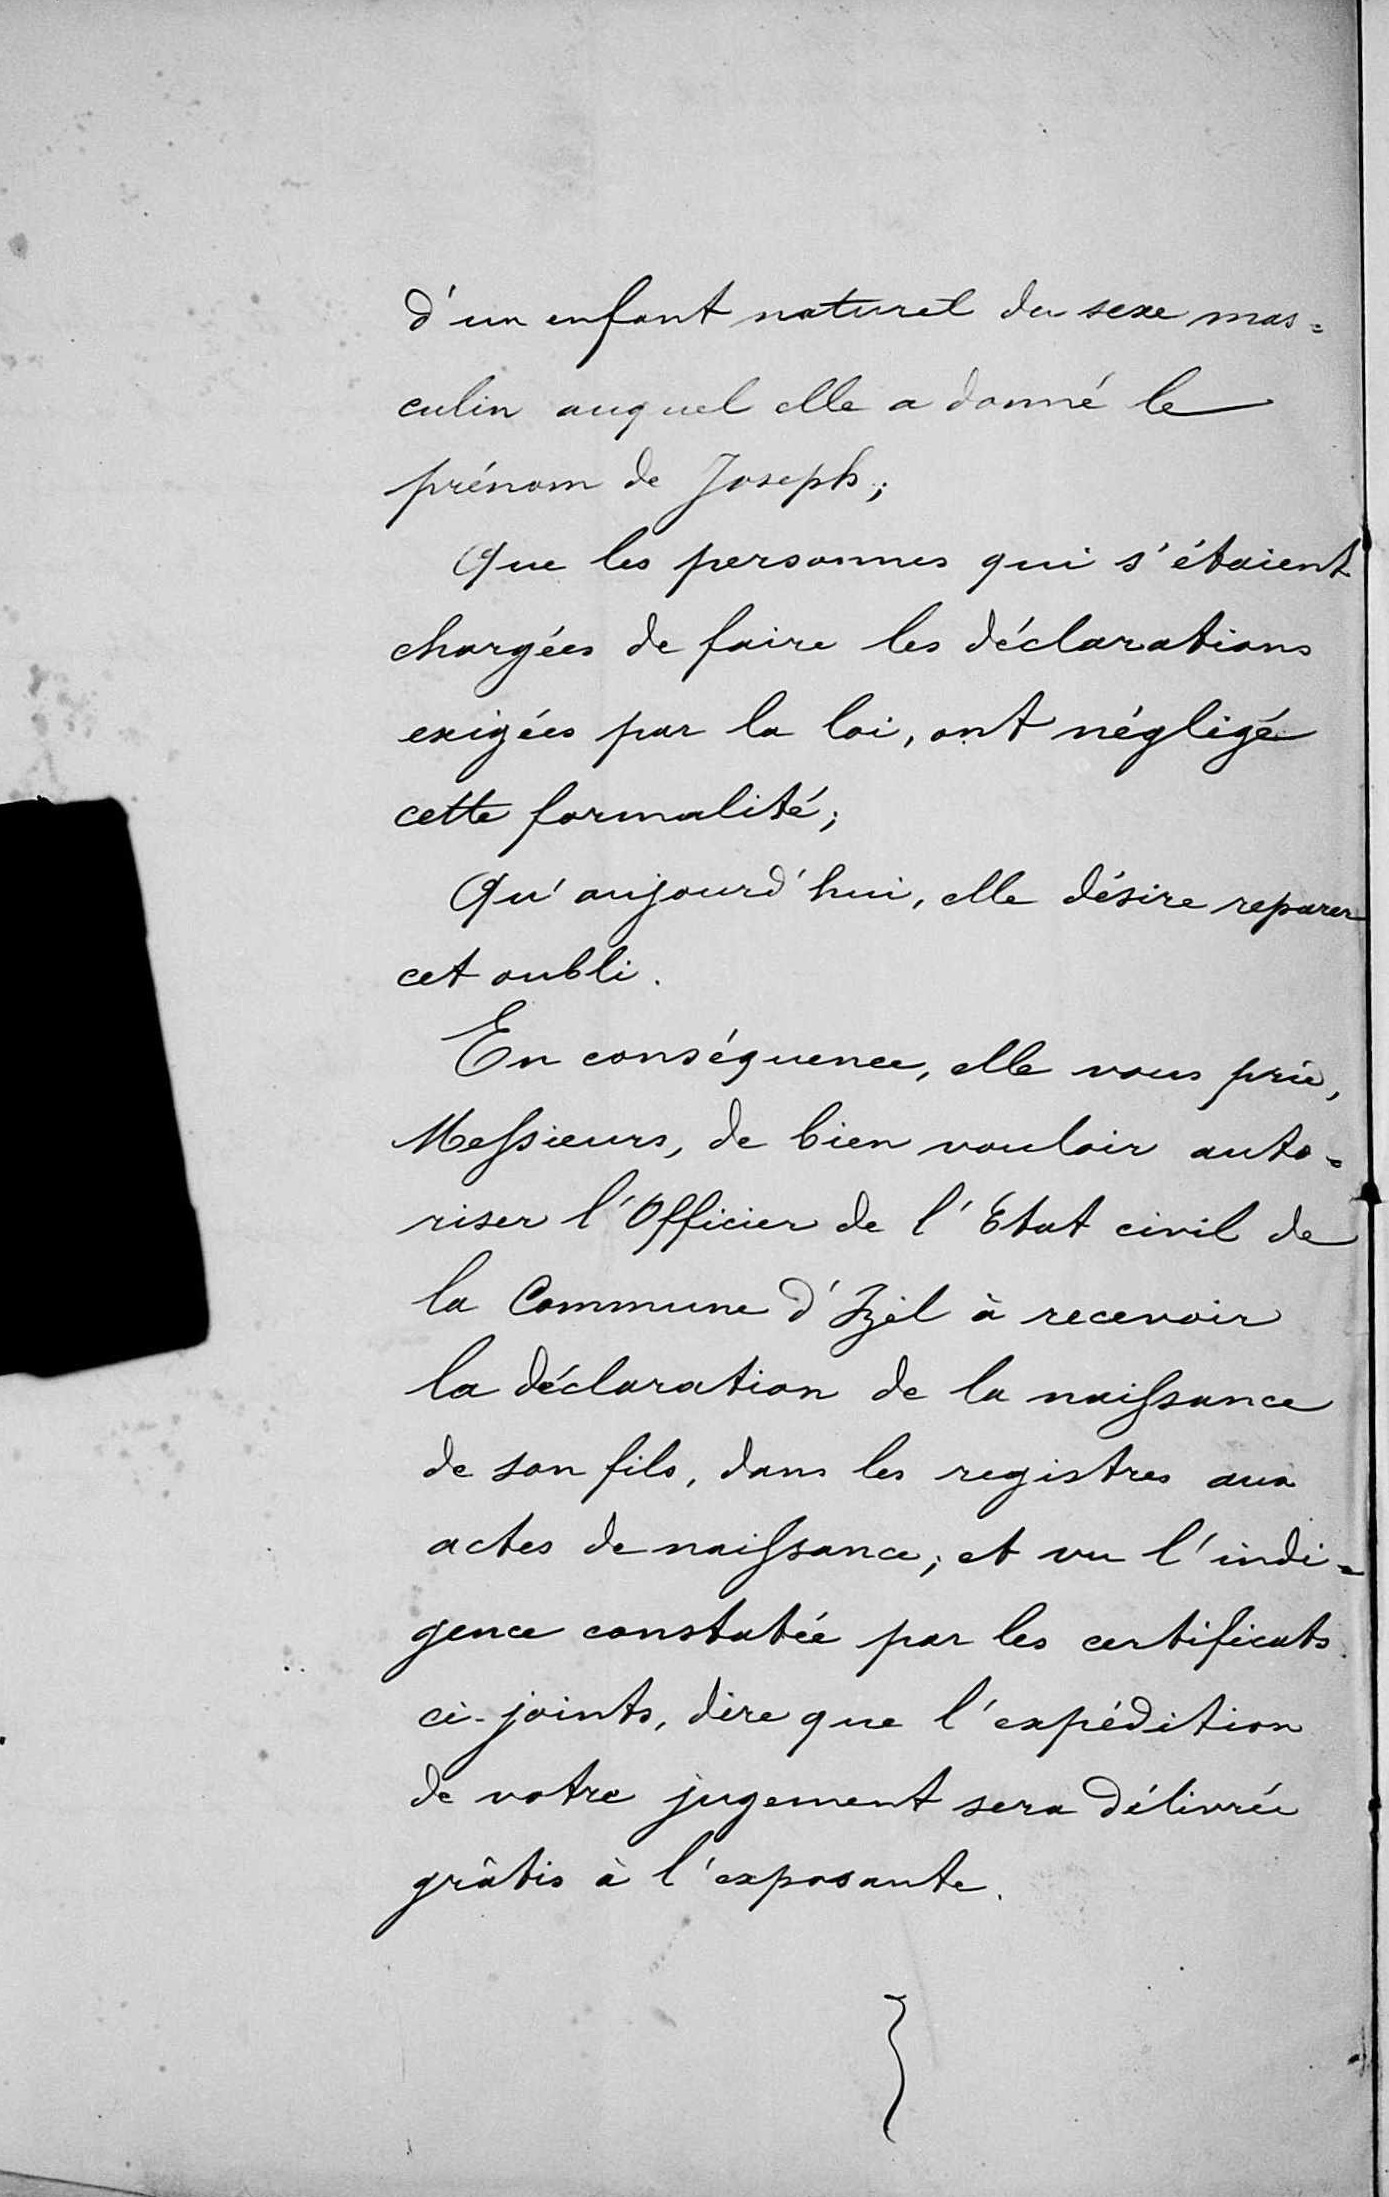 d'un enfant naturel du sexe mas=
culin auquel elle a donné le
prénom de Joseph;
Que les personnes qui s'étaient
chargées de faire les déclarations
exigées par la loi, ont négligé
cette formalité;
Qu'aujourd'hui, elle désire reparer
cet oubli.
En conséquence, elle vous prie,
Messieurs, de bien vouloir auto=
riser l'Officier de l'Etat civil de
la Commune d'Izel à recevoir
la déclaration de la naissance
de son fils, dans les registres aux
actes de naissance; et vu l'indi=
gence constatée par les certificats
ci-joints, dire que l'expédition
de votre jugement sera délivrée
grâtis à l'exposante.